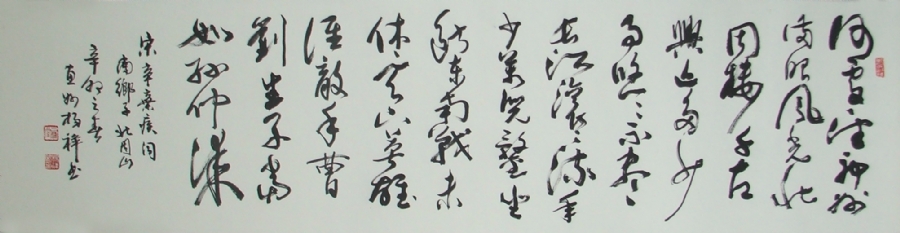 何處望神州
滿眼風光北
固樓千古
興亡多少
事悠々不盡
長江滾々流年
少萬兜鍪坐
斷東南戰未
休天下英雄
誰敵手曹
劉生子當
如孫仲謀
宋辛棄疾詞
南鄉子北固山
辛卯之春
真州楊祥書